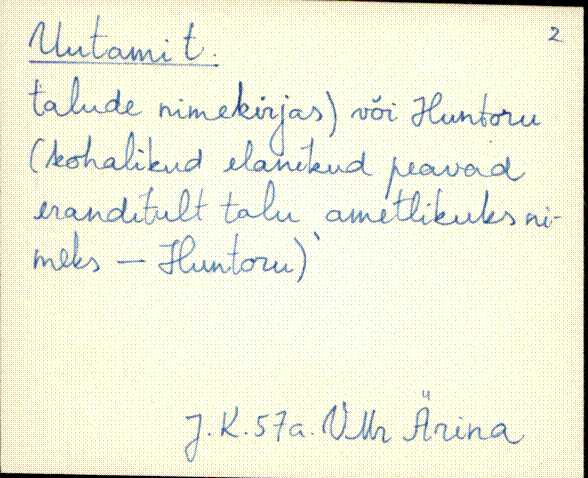 Uutami t. 2
talude nimekirjas) või Huntoru
(kohalikud elanikud peavad
eranditult talu ametlikuks ni-
meks — Huntoru)
J. K. 57a. VMr Ärina